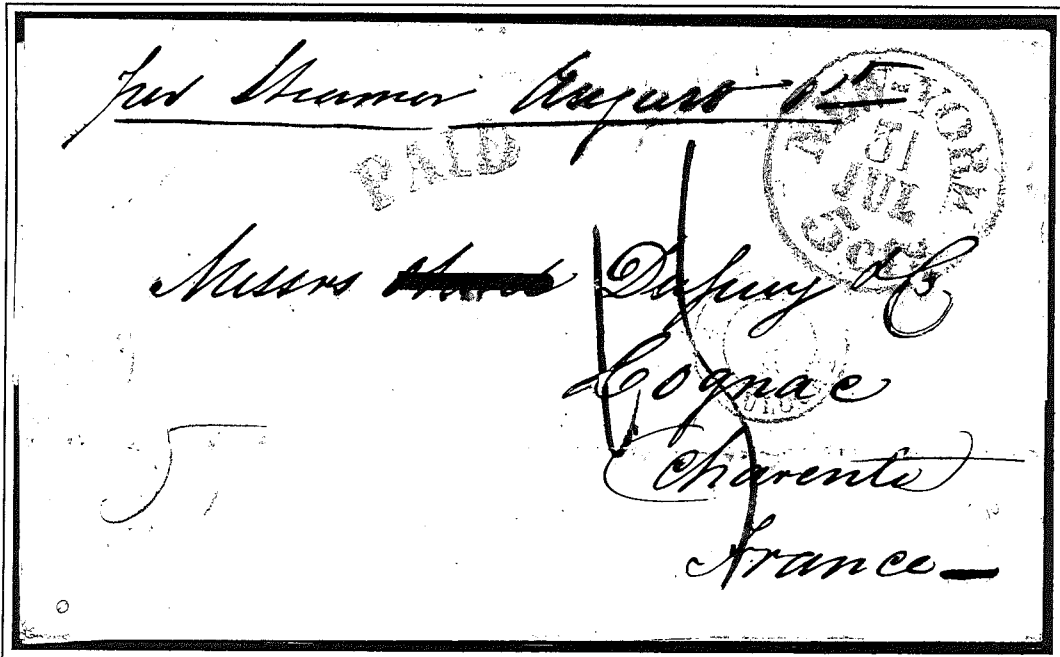 per Steamer August 1st
PAID
NEW-YORK
31
JUL
5 cts
Messrs Dupuy & Co
Cognac
Charente
France
5